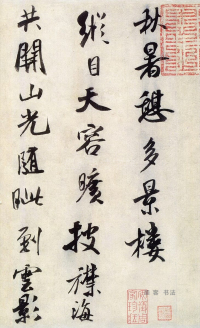 秋暑憩多景樓
縱目天容曠披襟海
共開山光隨眺到雲影